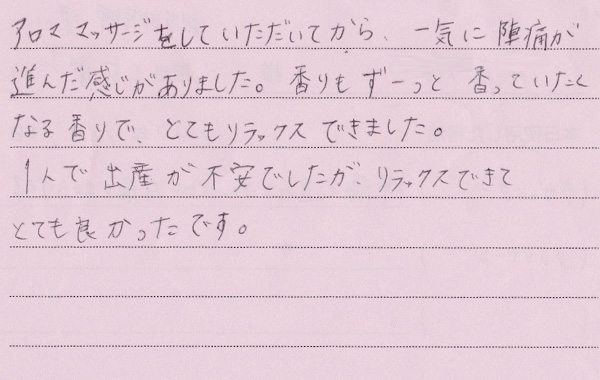 アロママッサージをしていただいてから、一気に陣痛が
進んだ感じがありました。香りもずーっと香っていたく
なる香りで、とてもリラックスできました。
1人で出産が不安でしたが、リラックスできて
とても良かったです。